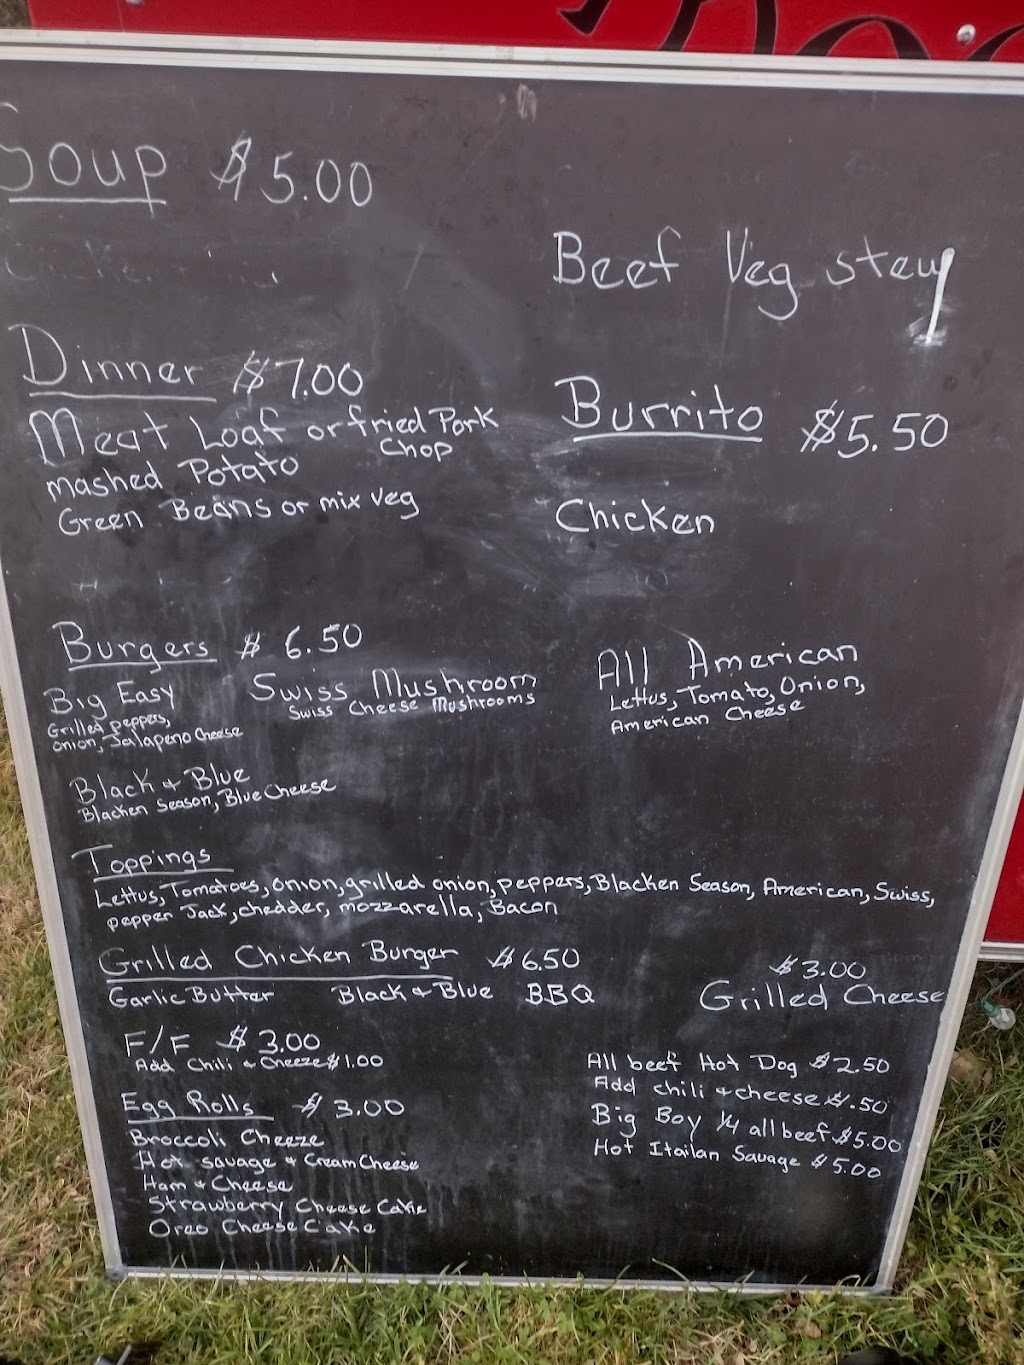 Soup $5.00
Beef Veg stew
Dinner $7.00
Meat Loaf or fried Pork Chop
mashed Potato
Green Beans or mix veg
Burrito $5.50
Chicken
Burgers $6.50
Big Easy
Grilled peppers,
onion, Jalapeno Cheese
Swiss Mushroom
Swiss Cheese Mushrooms
All American
Lettus, Tomato, Onion,
American Cheese
Black & Blue
Blacken Season, Blue Cheese
Toppings
Lettus, Tomatoes, onion, grilled onion, peppers, Blacken Season, American, Swiss,
pepper Jack, chedder, mozzarella, Bacon
Grilled Chicken Burger $6.50
Garlic Butter Black & Blue BBQ
$3.00
Grilled Cheese
F/F $3.00
Add Chili & Cheeze $1.00
Egg Rolls $3.00
Broccoli Cheeze
Hot savage & Cream Cheese
Ham & Cheese
Strawberry Cheese Cake
Oreo Cheese Cake
All beef Hot Dog $2.50
Add chili & cheese $.50
Big Boy 1/4 all beef $5.00
Hot Itailan Savage $5.00